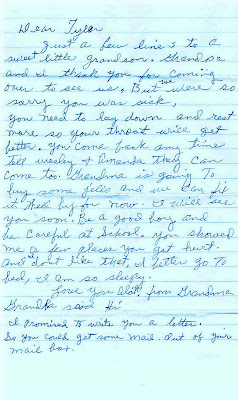 Dear Tyler
Just a few lines to a
sweet little grandson. Grandpa
and I thank you for coming
over to see us, But we were so
sorry you was sick,
you need to lay down and rest
more so your throat will get
better. You come back any time
tell Wesley & Amanda they can
come too. Grandma is going to
buy some pills and we can fix
it. Well by for now. I will see
you soon. Be a good boy and
be careful at School. you showed
me a few places you get hurt.
and I don't like that, I better go to
bed, I am so sleepy.
Love you Alot, from Grandma
Grandpa said Hi
I promised to write you a letter.
So you could get some mail. Out of your
mail box.